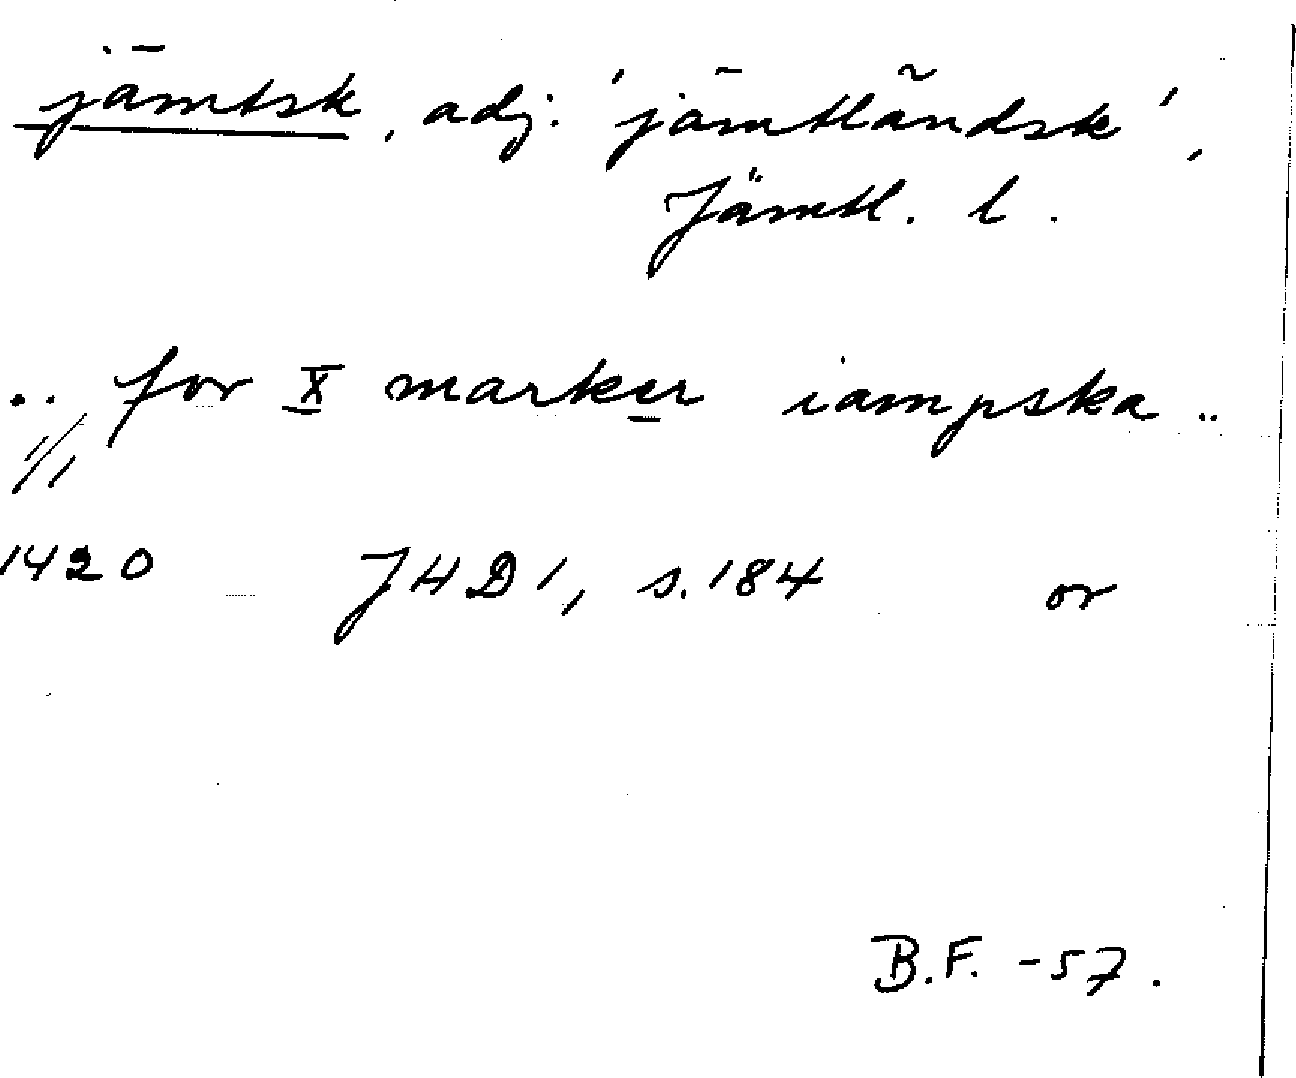 jämtsk, adj. 'jämtländsk',
Jämtl. l.
.. for X marker iampska ..
1/1
1420 JHD 1, s. 184 or
B.F. -57.